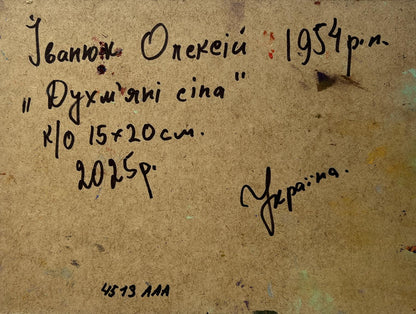 Іванюк Олексій 1954 р.н.
„Духм'яні сіна"
к/о 15×20 см.
2025р.
Україна.
4513 ААА